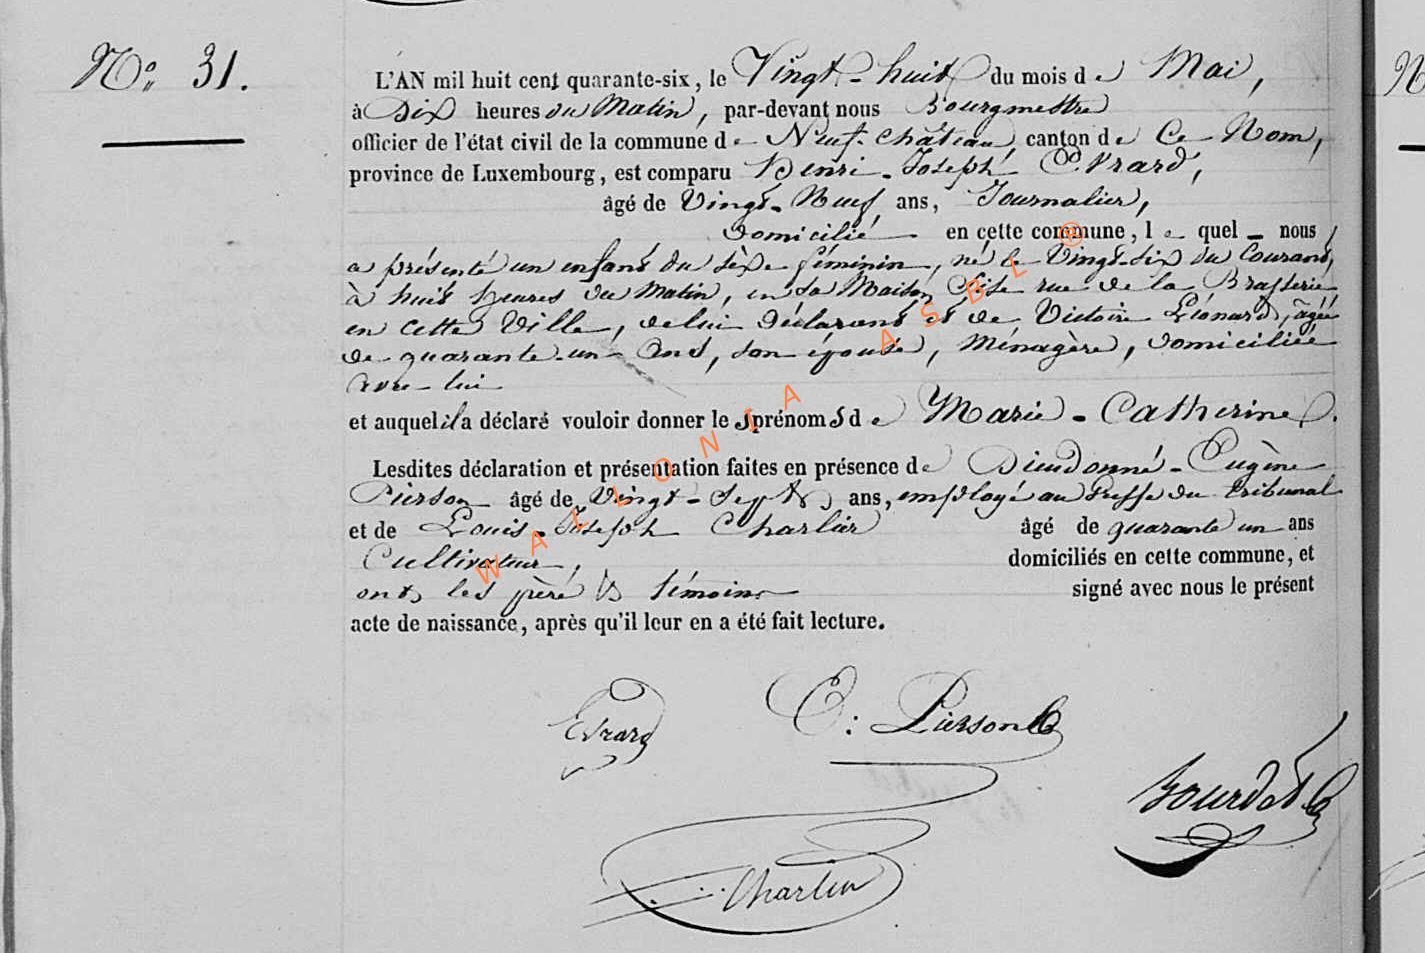 No 31.
L'AN mil huit cent quarante-six, le Vingt-huit du mois de Mai,
à Dix heures du Matin, par-devant nous Bourgmestre
officier de l'état civil de la commune de Neuf-château canton de Ce Nom,
province de Luxembourg, est comparu Henri-Joseph Evrard,
âgé de Vingt-Neuf ans, Journalier,
Domicilié en cette commune, le quel nous
a présenté un enfant du sèxe féminin, né le Vingt-six du Courant,
à huit heures du Matin, en sa Maison Sise rue de la Brasserie
en cette Ville, de lui Déclarant et de Victoire Léonard, âgée
de quarante-un Ans, son épouse, Ménagère, domiciliée
avec lui
et auquel il a déclaré vouloir donner les prénoms de Marie-Catherine.
Lesdites déclaration et présentation faites en présence de Dieudonné-Eugène
Pierson âgé de Vingt-Sept ans, employé au Greffe du tribunal
et de Louis-Joseph Charlier âgé de quarante un ans
Cultivateur, domiciliés en cette commune, et
ont les père et témoins signé avec nous le présent
acte de naissance, après qu'il leur en a été fait lecture.
Evrard
E: Pierson
Bourdet
Charlier
WALLONIA ASBL ®